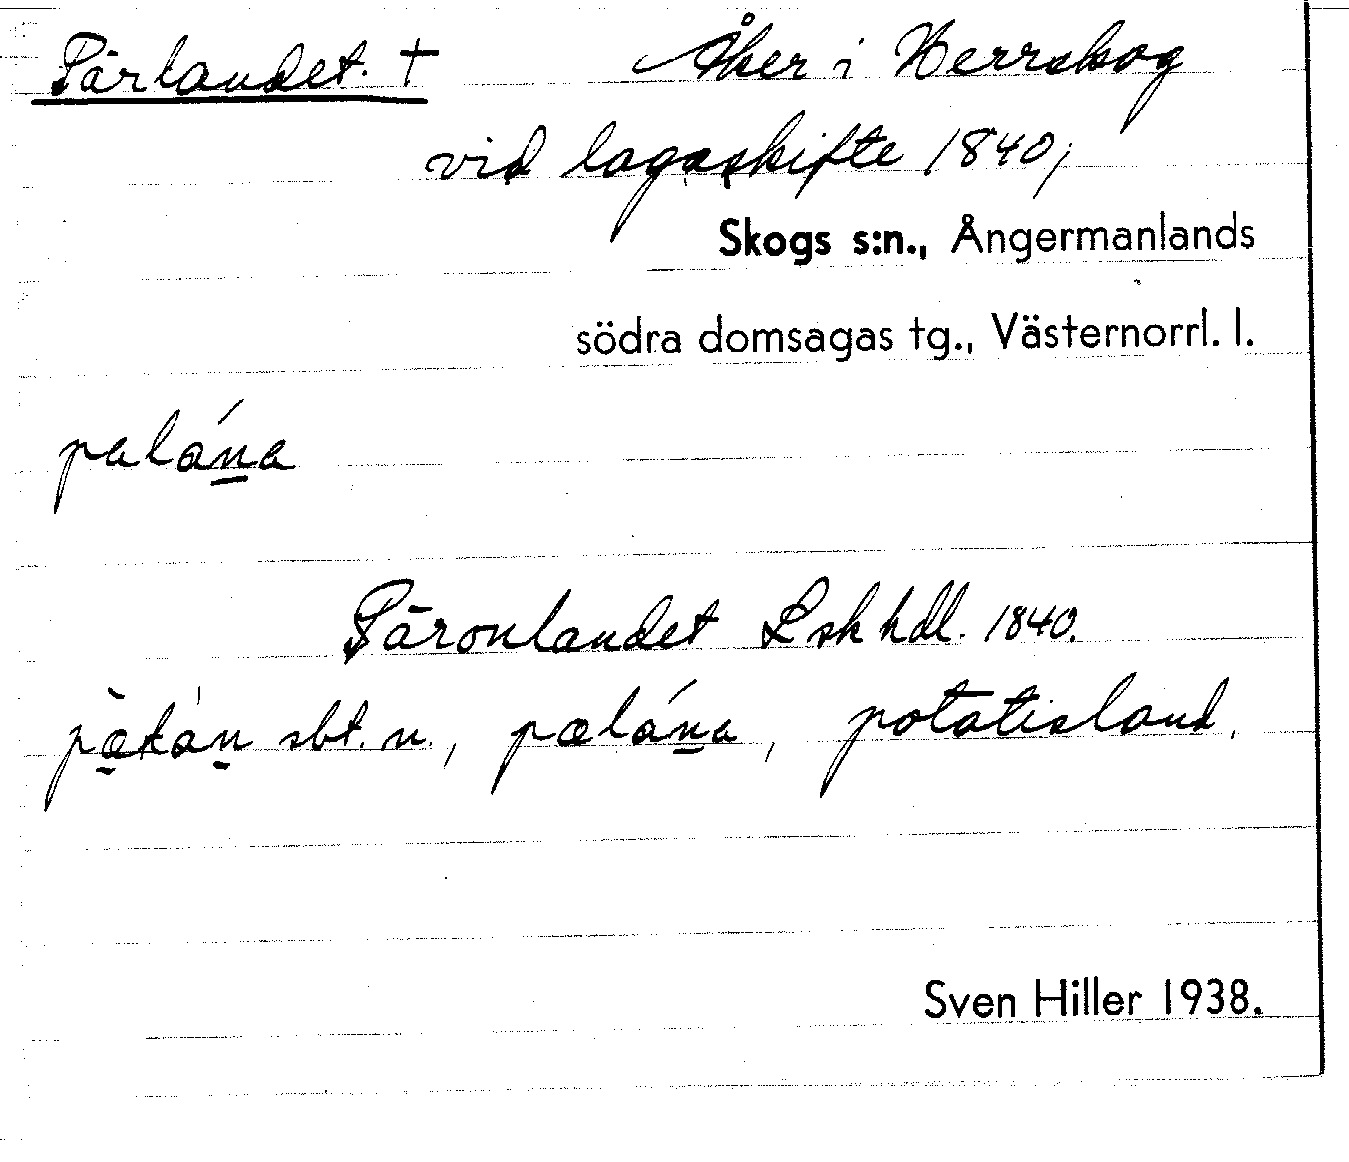 Pärlandet. † Åker i Herrskog
vid lagaskifte 1840;
Skogs s:n., Ångermanlands
södra domsagas tg., Västernorrl. l.
palána
Päronlandet Lskhdl. 1840.
sbt. n., pælána, potatisland.
Sven Hiller 1938.